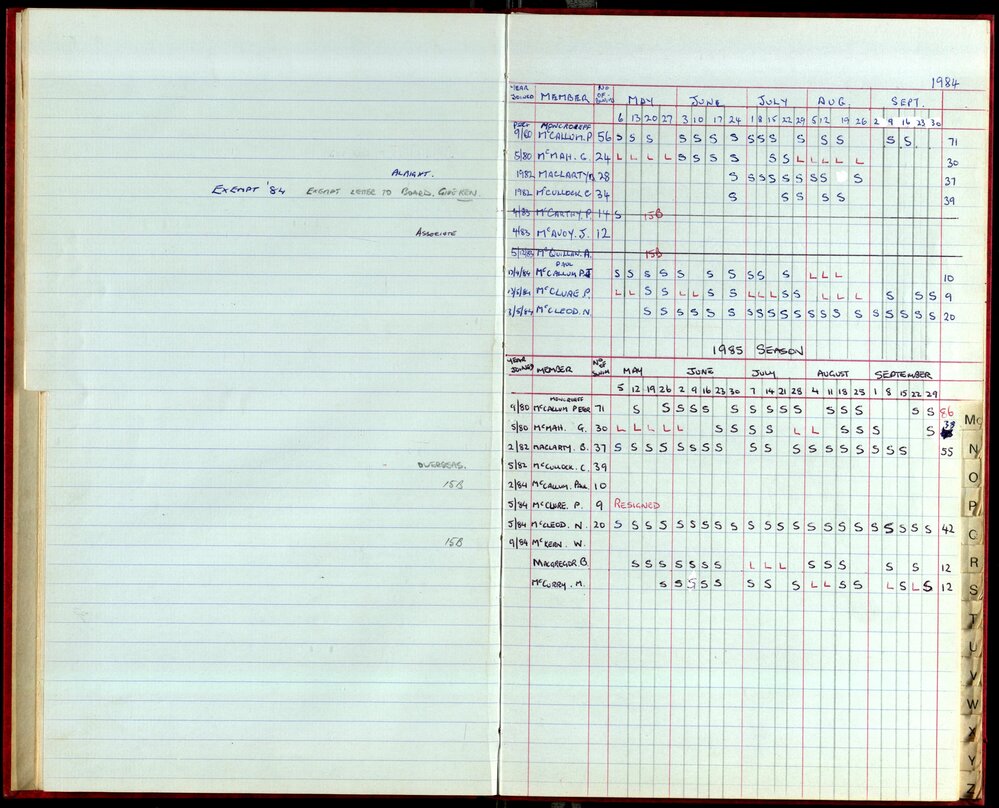 ALRIGHT.
EXEMPT '84 EXEMPT LETTER TO BOARD. GIVEN KEN.
ASSOCIATE
OVERSEAS.
15B
15B
1984
YEAR JOINED MEMBER NO OF SWIMS MAY JUNE JULY AUG. SEPT.
6 13 20 27 3 10 17 24 1 8 15 22 29 5 12 19 26 2 9 16 23 30
MONCRDEFF
9/80 McCALLUM.P. 56 S S S S S S S S S S S S S S S 71
5/80 McMAH. G. 24 L L L L S S S S S S L L L L L 30
1982 MACLARTY B 28 S S S S S S S S S 37
1982 McCULLOCK.C 34 S S S S S 39
4/83 McCARTHY.P. 14 S 15B
4/83 McAVOY.J. 12
McQUILLAN.A. 15B
PAUL
McCALLUM P.J S S S S S S S S S S L L L 10
McCLURE P. L L S S L L S S L L L S S L L L S S S 9
3/5/84 McCLEOD.N. S S S S S S S S S S S S S S S S S S S S 20
1985 SEASON
YEAR JOINED MEMBER No OF SWIM MAY JUNE JULY AUGUST SEPTEMBER
5 12 19 26 2 9 16 23 30 7 14 21 28 4 11 18 25 1 8 15 22 29
MONCRDEFF
9/80 McCALLUM PETER 71 S S S S S S S S S S S S S S S 86
5/80 McMAH. G. 30 L L L L L S S S S S L L S S S S 39
2/82 MACLARTY. B. 37 S S S S S S S S S S S S S S S S S S 55
5/82 McCULLOCK. C. 39
2/84 McCALLUM. PAUL 10
5/84 McCLURE. P. 9 RESIGNED
5/84 McCLEOD. N. 20 S S S S S S S S S S S S S S S S S S S S S S 42
9/84 McKERN. W.
MACGREGOR B. S S S S S S S L L L S S S S S 12
McCURRY. M. S S S S S S S S L L S S L S L S 12
Mc
N
O
P
Q
R
S
T
U
V
W
X
Y
Z